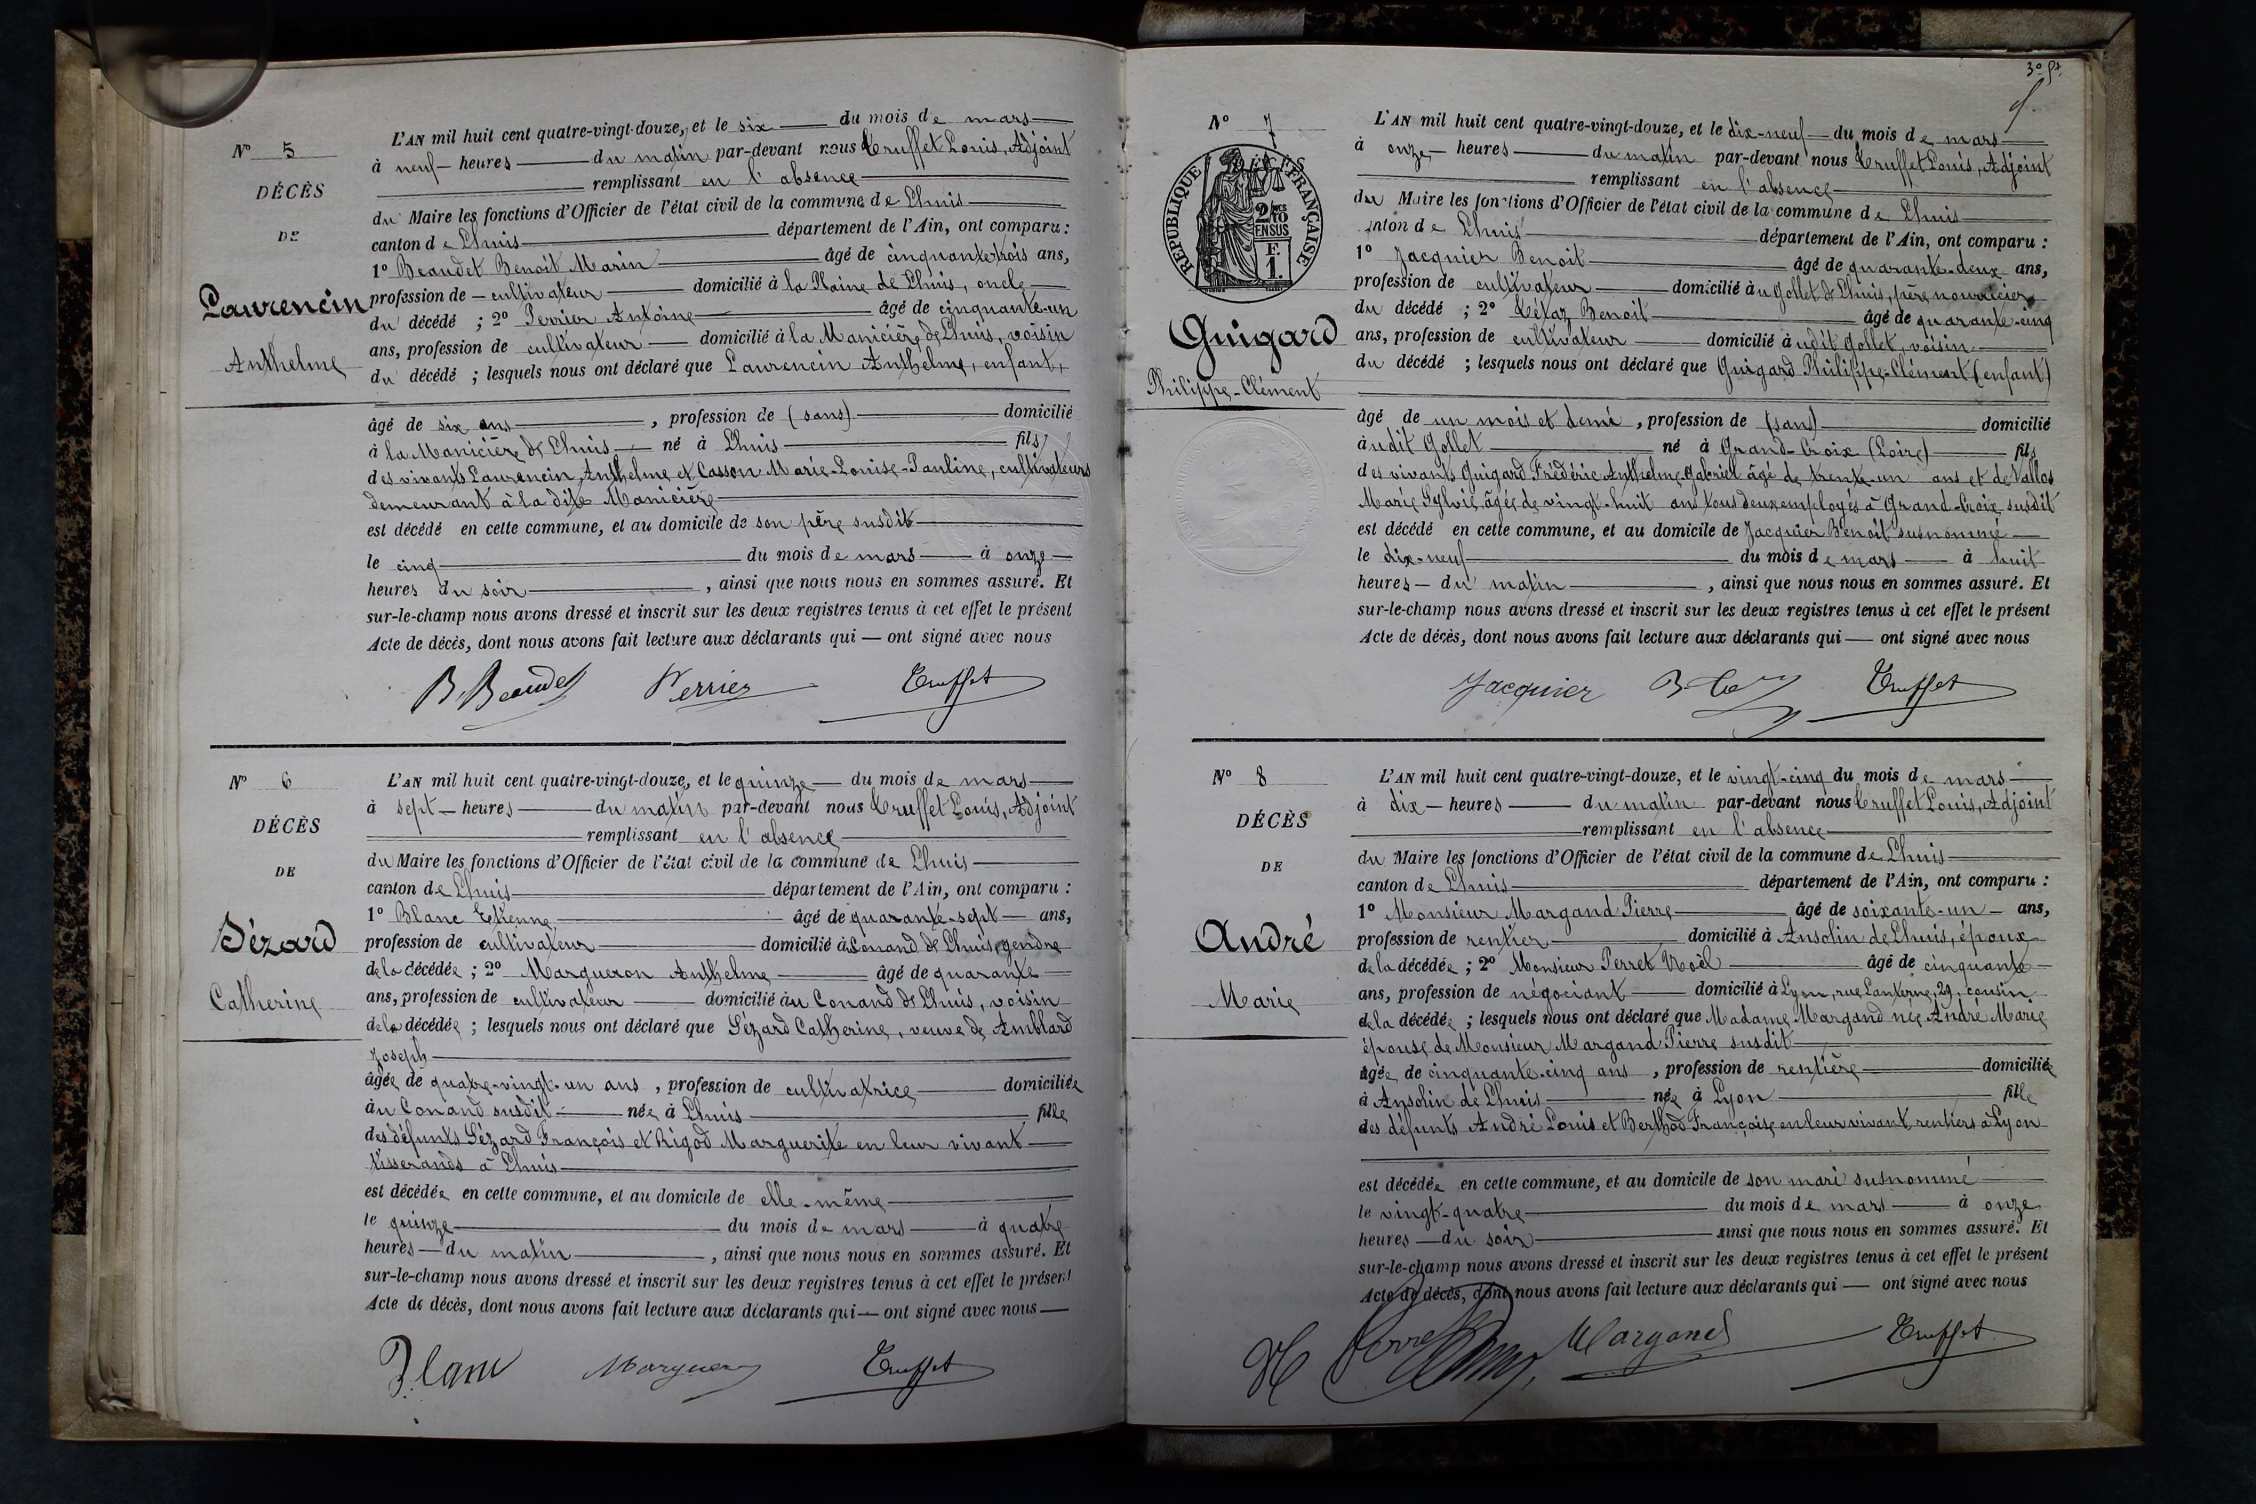 N° 5
DÉCÈS
DE
Laurencin
Anthelme
L'AN mil huit cent quatre-vingt-douze, et le six du mois de mars
à neuf heures du matin par-devant nous Truffet Louis, Adjoint
remplissant en l'absence
du Maire les fonctions d'Officier de l'état civil de la commune de Lhuis
canton de Lhuis département de l'Ain, ont comparu :
1° Beaudet Benoît Marin âgé de cinquante trois ans,
profession de cultivateur domicilié à la Plaine de Lhuis, oncle
du décédé ; 2° Perrier Antoine âgé de cinquante-un
ans, profession de cultivateur domicilié à la Manicière de Lhuis, voisin
du décédé ; lesquels nous ont déclaré que Laurencin Anthelme, enfant,
âgé de six ans , profession de (sans) domicilié
à la Manicière de Lhuis né à Lhuis fils
des vivants Laurencin Anthelme et Casson Marie-Louise-Pauline, cultivateurs
demeurant à la dite Manicière
est décédé en cette commune, et au domicile de son père susdit
le cinq du mois de mars à onze
heures du soir , ainsi que nous nous en sommes assuré. Et
sur-le-champ nous avons dressé et inscrit sur les deux registres tenus à cet effet le présent
Acte de décès, dont nous avons fait lecture aux déclarants qui — ont signé avec nous
B. Beaudet Perrier Truffet
N° 6
DÉCÈS
DE
Sézard
Catherine
L'AN mil huit cent quatre-vingt-douze, et le quinze du mois de mars
à sept heures du matin par-devant nous Truffet Louis, Adjoint
remplissant en l'absence
du Maire les fonctions d'Officier de l'état civil de la commune de Lhuis
canton de Lhuis département de l'Ain, ont comparu :
1° Blanc Etienne âgé de quarante-sept ans,
profession de cultivateur domicilié à Conand de Lhuis, gendre
de la décédée ; 2° Margueron Anthelme âgé de quarante
ans, profession de cultivateur domicilié au Conand de Lhuis, voisin
de la décédée ; lesquels nous ont déclaré que Sézard Catherine, veuve de Amblard
Joseph
âgée de quatre-vingt-un ans , profession de cultivatrice domiciliée
au Conand susdit née à Lhuis fille
des défunts Sézard François et Rigod Marguerite en leur vivant
tisserands à Lhuis
est décédée en cette commune, et au domicile de elle-même
le quinze du mois de mars à quatre
heures du matin , ainsi que nous nous en sommes assuré. Et
sur-le-champ nous avons dressé et inscrit sur les deux registres tenus à cet effet le présent
Acte de décès, dont nous avons fait lecture aux déclarants qui — ont signé avec nous
Blanc Margueron Truffet
N° 7
RÉPUBLIQUE FRANÇAISE
2/10 EN SUS
F. 1.
Guigard
Philippe-Clément
L'AN mil huit cent quatre-vingt-douze, et le dix-neuf du mois de mars
à onze heures du matin par-devant nous Truffet Louis, Adjoint
remplissant en l'absence
du Maire les fonctions d'Officier de l'état civil de la commune de Lhuis
canton de Lhuis département de l'Ain, ont comparu :
1° Jacquier Benoit âgé de quarante-deux ans,
profession de cultivateur domicilié au Gollet de Lhuis, père nourricier
du décédé ; 2° Tétaz Benoit âgé de quarante-cinq
ans, profession de cultivateur domicilié audit Gollet, voisin
du décédé ; lesquels nous ont déclaré que Guigard Philippe-Clément (enfant)
âgé de un mois et demi , profession de (sans) domicilié
audit Gollet né à Grand-Croix (Loire) fils
des vivants Guigard Frédéric Anthelme Gabriel âgé de trente-un ans et de Vallos
Marie Sylvie âgée de vingt-huit ans tous deux employés à Grand-Croix susdit
est décédé en cette commune, et au domicile de Jacquier Benoit susnommé
le dix-neuf du mois de mars à huit
heures du matin , ainsi que nous nous en sommes assuré. Et
sur-le-champ nous avons dressé et inscrit sur les deux registres tenus à cet effet le présent
Acte de décès, dont nous avons fait lecture aux déclarants qui — ont signé avec nous
Jacquier Truffet
N° 8
DÉCÈS
DE
André
Marie
L'AN mil huit cent quatre-vingt-douze, et le vingt-cinq du mois de mars
à dix heures du matin par-devant nous Truffet Louis, Adjoint
remplissant en l'absence
du Maire les fonctions d'Officier de l'état civil de la commune de Lhuis
canton de Lhuis département de l'Ain, ont comparu :
1° Monsieur Margand Pierre âgé de soixante-un ans,
profession de rentier domicilié à Ansolin de Lhuis, époux
de la décédée ; 2° Monsieur Perret Noël âgé de cinquante
ans, profession de négociant domicilié à Lyon, rue Lanterne, 29, cousin
de la décédée ; lesquels nous ont déclaré que Madame Margand née André Marie
épouse de Monsieur Margand Pierre susdit
âgée de cinquante-cinq ans , profession de rentière domiciliée
à Ansolin de Lhuis née à Lyon fille
des défunts André Louis et Berthod Françoise en leur vivant rentiers à Lyon
est décédée en cette commune, et au domicile de son mari susnommé
le vingt-quatre du mois de mars à onze
heures du soir ainsi que nous nous en sommes assuré. Et
sur-le-champ nous avons dressé et inscrit sur les deux registres tenus à cet effet le présent
Acte de décès, dont nous avons fait lecture aux déclarants qui — ont signé avec nous
N Perret Margand Truffet